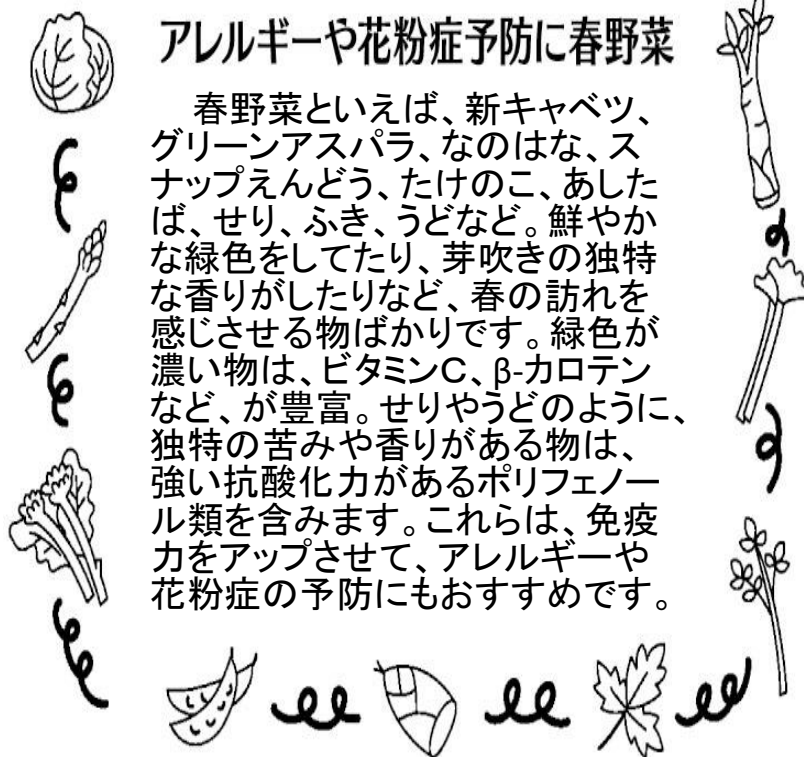 アレルギーや花粉症予防に春野菜
　春野菜といえば、新キャベツ、
グリーンアスパラ、なのはな、ス
ナップえんどう、たけのこ、あした
ば、せり、ふき、うどなど。鮮やか
な緑色をしてたり、芽吹きの独特
な香りがしたりなど、春の訪れを
感じさせる物ばかりです。緑色が
濃い物は、ビタミンC、β-カロテン
など、が豊富。せりやうどのように、
独特の苦みや香りがある物は、
強い抗酸化力があるポリフェノー
ル類を含みます。これらは、免疫
力をアップさせて、アレルギーや
花粉症の予防にもおすすめです。